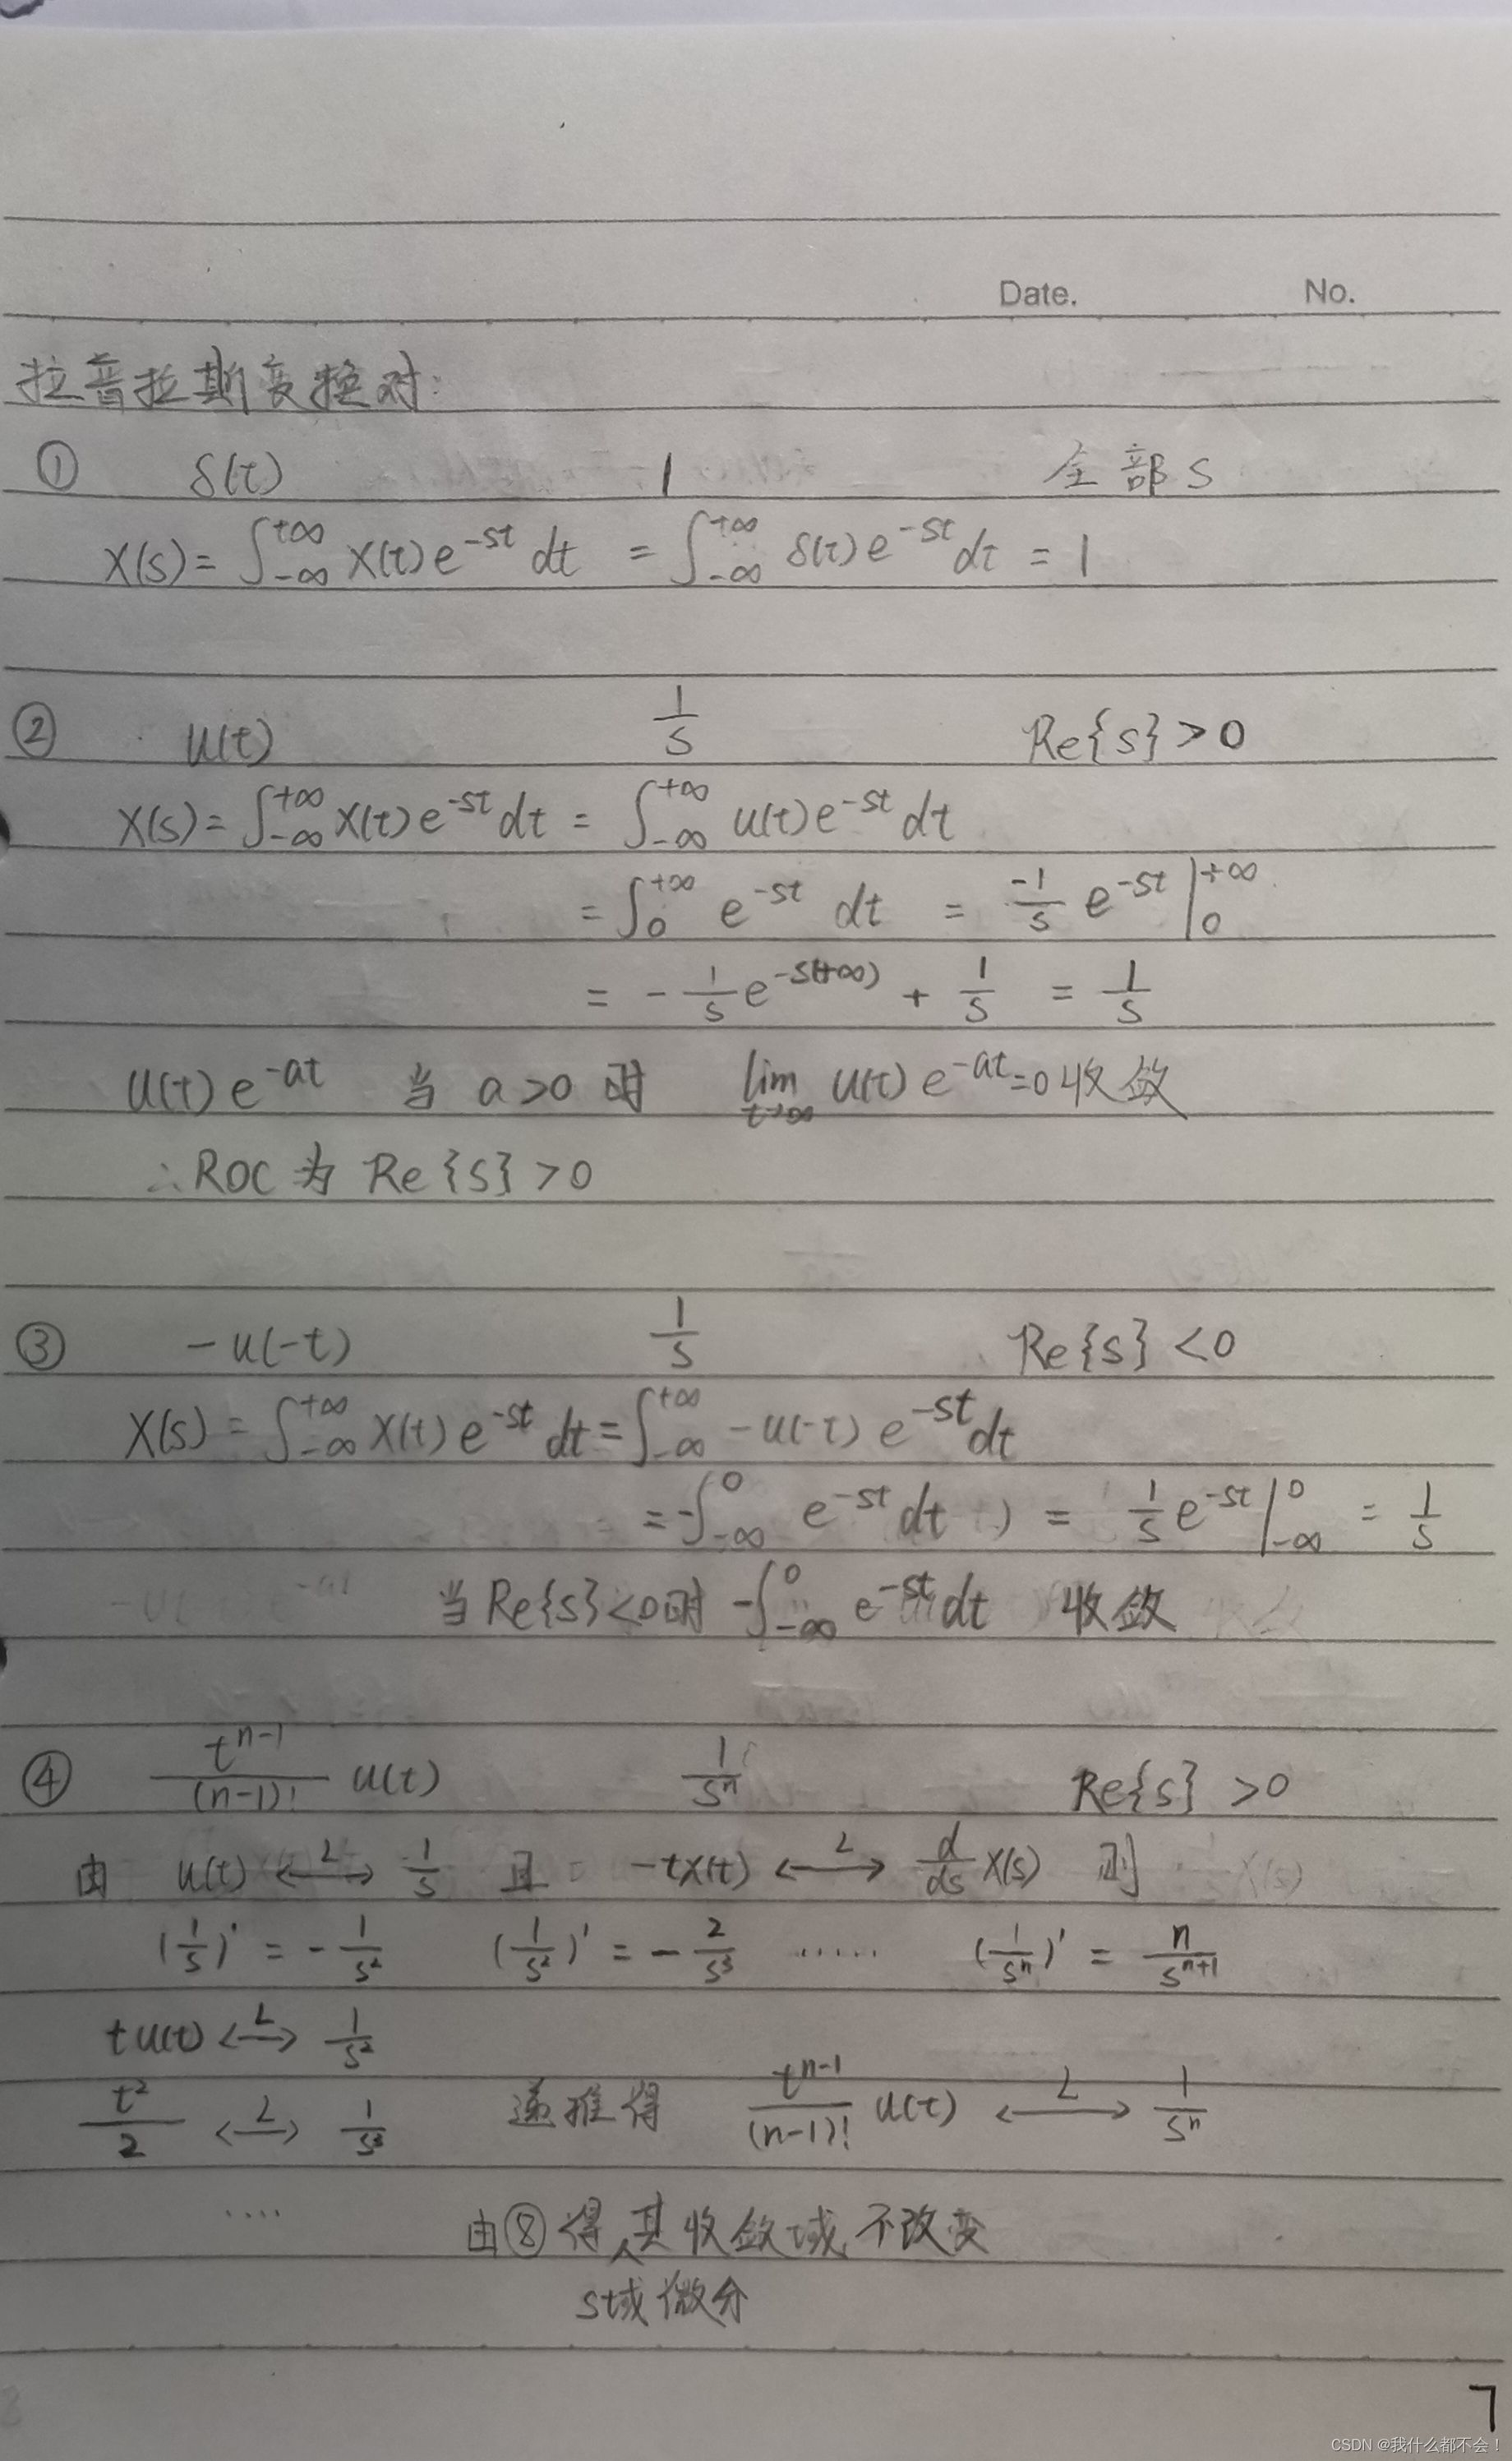 Date. No.
拉普拉斯变换对:
① δ(t) 1 全部 S
X(s) = ∫_{-∞}^{+∞} x(t) e^{-st} dt = ∫_{-∞}^{+∞} δ(t) e^{-st} dt = 1
② u(t) 1/s Re{s} > 0
X(s) = ∫_{-∞}^{+∞} x(t) e^{-st} dt = ∫_{-∞}^{+∞} u(t) e^{-st} dt
= ∫_0^{+∞} e^{-st} dt = -1/s e^{-st} |_0^{+∞}
= - 1/s e^{-s(+∞)} + 1/s = 1/s
u(t) e^{-at} 当 a>0 时 lim_{t→∞} u(t) e^{-at} = 0 收敛
∴ ROC 为 Re{s} > 0
③ -u(-t) 1/s Re{s} < 0
X(s) = ∫_{-∞}^{+∞} x(t) e^{-st} dt = ∫_{-∞}^{+∞} -u(-t) e^{-st} dt
= -∫_{-∞}^0 e^{-st} dt ) = 1/s e^{-st} |_{-∞}^0 = 1/s
当 Re{s}<0 时 -∫_{-∞}^0 e^{-st} dt 收敛
④ t^{n-1}/(n-1)! u(t) 1/s^n Re{s} > 0
由 u(t) ←L→ 1/s 且 -tx(t) ←L→ d/ds X(s) 则
(1/s)' = - 1/s^2 (1/s^2)' = - 2/s^3 ······ (1/s^n)' = n/s^{n+1}
tu(t) ←L→ 1/s^2
t^2/2 ←L→ 1/s^3 递推得 t^{n-1}/(n-1)! u(t) ←L→ 1/s^n
···· 由⑧得,其收敛域不改变
s域微分
7
CSDN @我什么都不会!